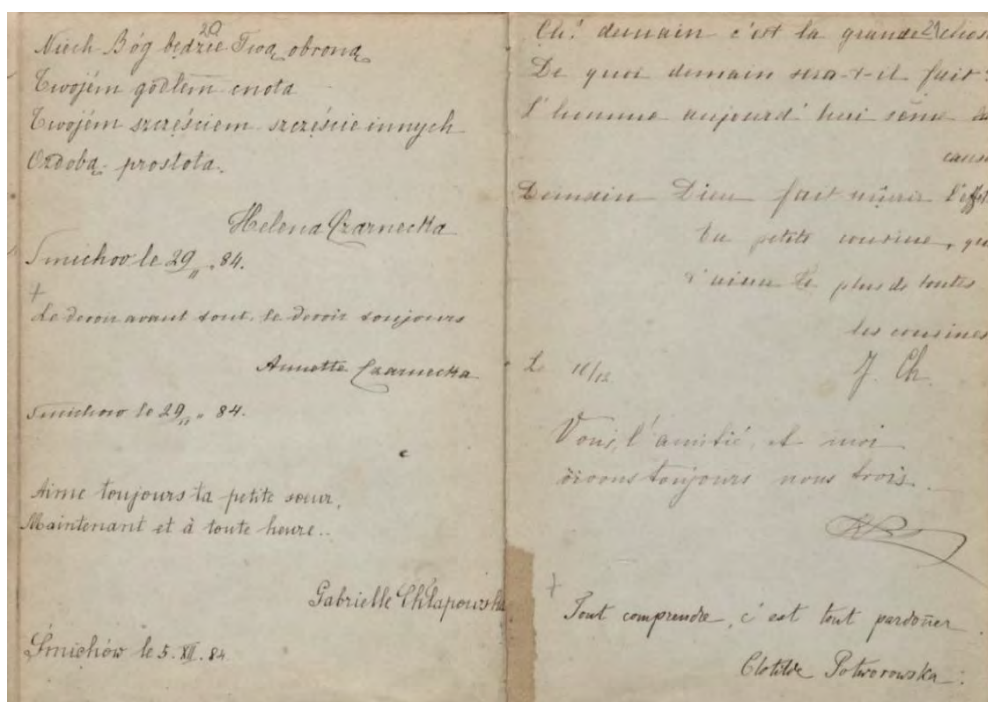 20
Niech Bóg będzie Twą obroną
Twojém godłem cnota
Twojém szczęściem szczęście innych
Ozdobą prostota.
Helena Czarnecka
Smichow le 29 84.
+
Le devoir avant tout, le devoir toujours
Annette Czarnecka
Smichow le 29 84.
Aime toujours ta petite sœur,
Maintenant et à toute heure..
Gabrielle Chłapowska
Śmichów le 5. XII. 84
21
demain c'est la grande chose
De quoi demain sera-t-il fait?
L'homme aujourd'hui sème la
cause
Demain Dieu fait mûrir l'effet
Ta petite cousine, qui
t'aime le plus de toutes
les cousines
Le 11/12. J. Ch.
Vous, l'amitié, et moi
vivons toujours nous trois.
+
Tout comprendre, c'est tout pardonner.
Clotilde Potworowska.